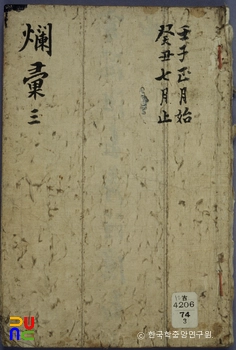 壬子正月始
癸丑七月止
爛彙 三
古
4206
74
3
© 한국학중앙연구원